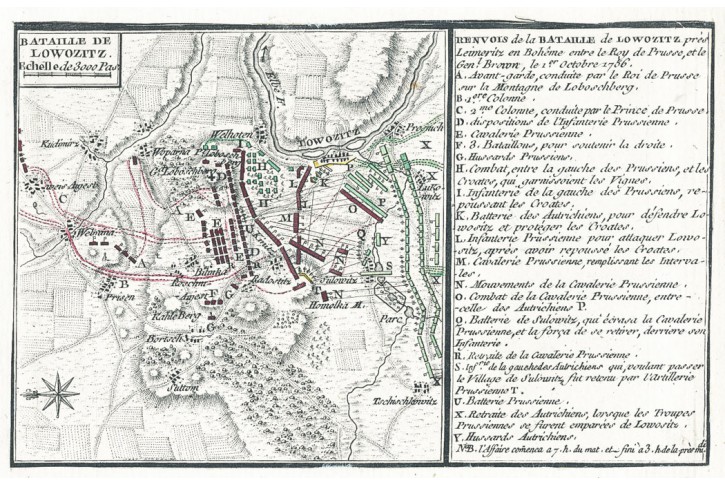 BATAILLE DE
LOWOZITZ.
Echelle de 3000 Pas.
Kudinitz
Welhoten
Elbe F.
LOWOZITZ
Wchinitz
C
Welmina
A
B
Prisen
Bilinka
Sulowitz
Homolka M.
Kahle Berg
Boritsch
Suttom
Parc
Tschischkowitz
X
X
RENVOIS de la BATAILLE de LOWOZITZ près
Leimeritz en Bohême entre le Roy de Prusse, et le
Gen.l Brown, le 1.er Octobre 1756.
A. Avant-garde, conduite par le Roi de Prusse
sur la Montagne de Loboschberg.
B. 1.ere Colonne.
C. 2.me Colonne, conduite par le Prince de Prusse.
D. dispositions de l'Infanterie Prussienne.
E. Cavalerie Prussienne.
F. 3. Bataillons, pour soutenir la droite.
G. Hussards Prussiens.
H. Combat, entre la gauche des Prussiens, et les
Croates, qui garnissoient les Vignes.
I. Infanterie de la gauche des Prussiens, re-
poussant les Croates.
K. Batterie des Autrichiens, pour défendre Lo-
wositz et protéger les Croates.
L. Infanterie Prussienne pour attaquer Lowo-
sitz, après avoir repoussé les Croates.
M. Cavalerie Prussienne, remplissant les Interva-
les.
N. Mouvements de la Cavalerie Prussienne.
O. Combat de la Cavalerie Prussienne, entre
celle des Autrichiens P.
Q. Batterie de Sulowitz, qui écrasa la Cavalerie
Prussienne, et la força de se retirer, derrière son
Infanterie.
R. Retraite de la Cavalerie Prussienne.
S. Inf.rie de la gauche des Autrichiens qui, voulant passer
le Village de Sulowitz, fut retenu par l'Artillerie
Prussienne T.
U. Batterie Prussienne.
X. Retraite des Autrichiens, lorsque les Troupes
Prussiennes se furent emparées de Lowositz.
Y. Hussards Autrichiens.
N.B. l'Affaire comença a 7. h. du mat. et fini à 3. h. de la près mi.di